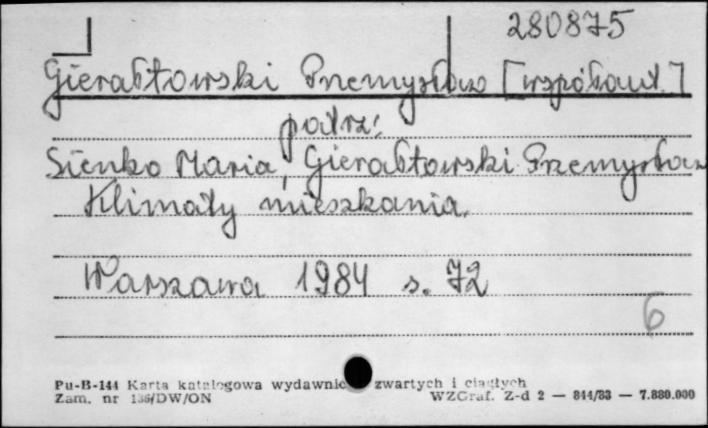 280875
Gierałtowski Przemysław [współaut.]
patrz:
Sienko Maria, Gierałtowski Przemysław
Klimaty mieszkania.
Warszawa 1984 s. 72
6
Pu-B-144 Karta katalogowa wydawnic zwartych i ciągłych
Zam. nr 136/DW/ON WZGraf. Z-d 2 — 844/83 — 7.880.000